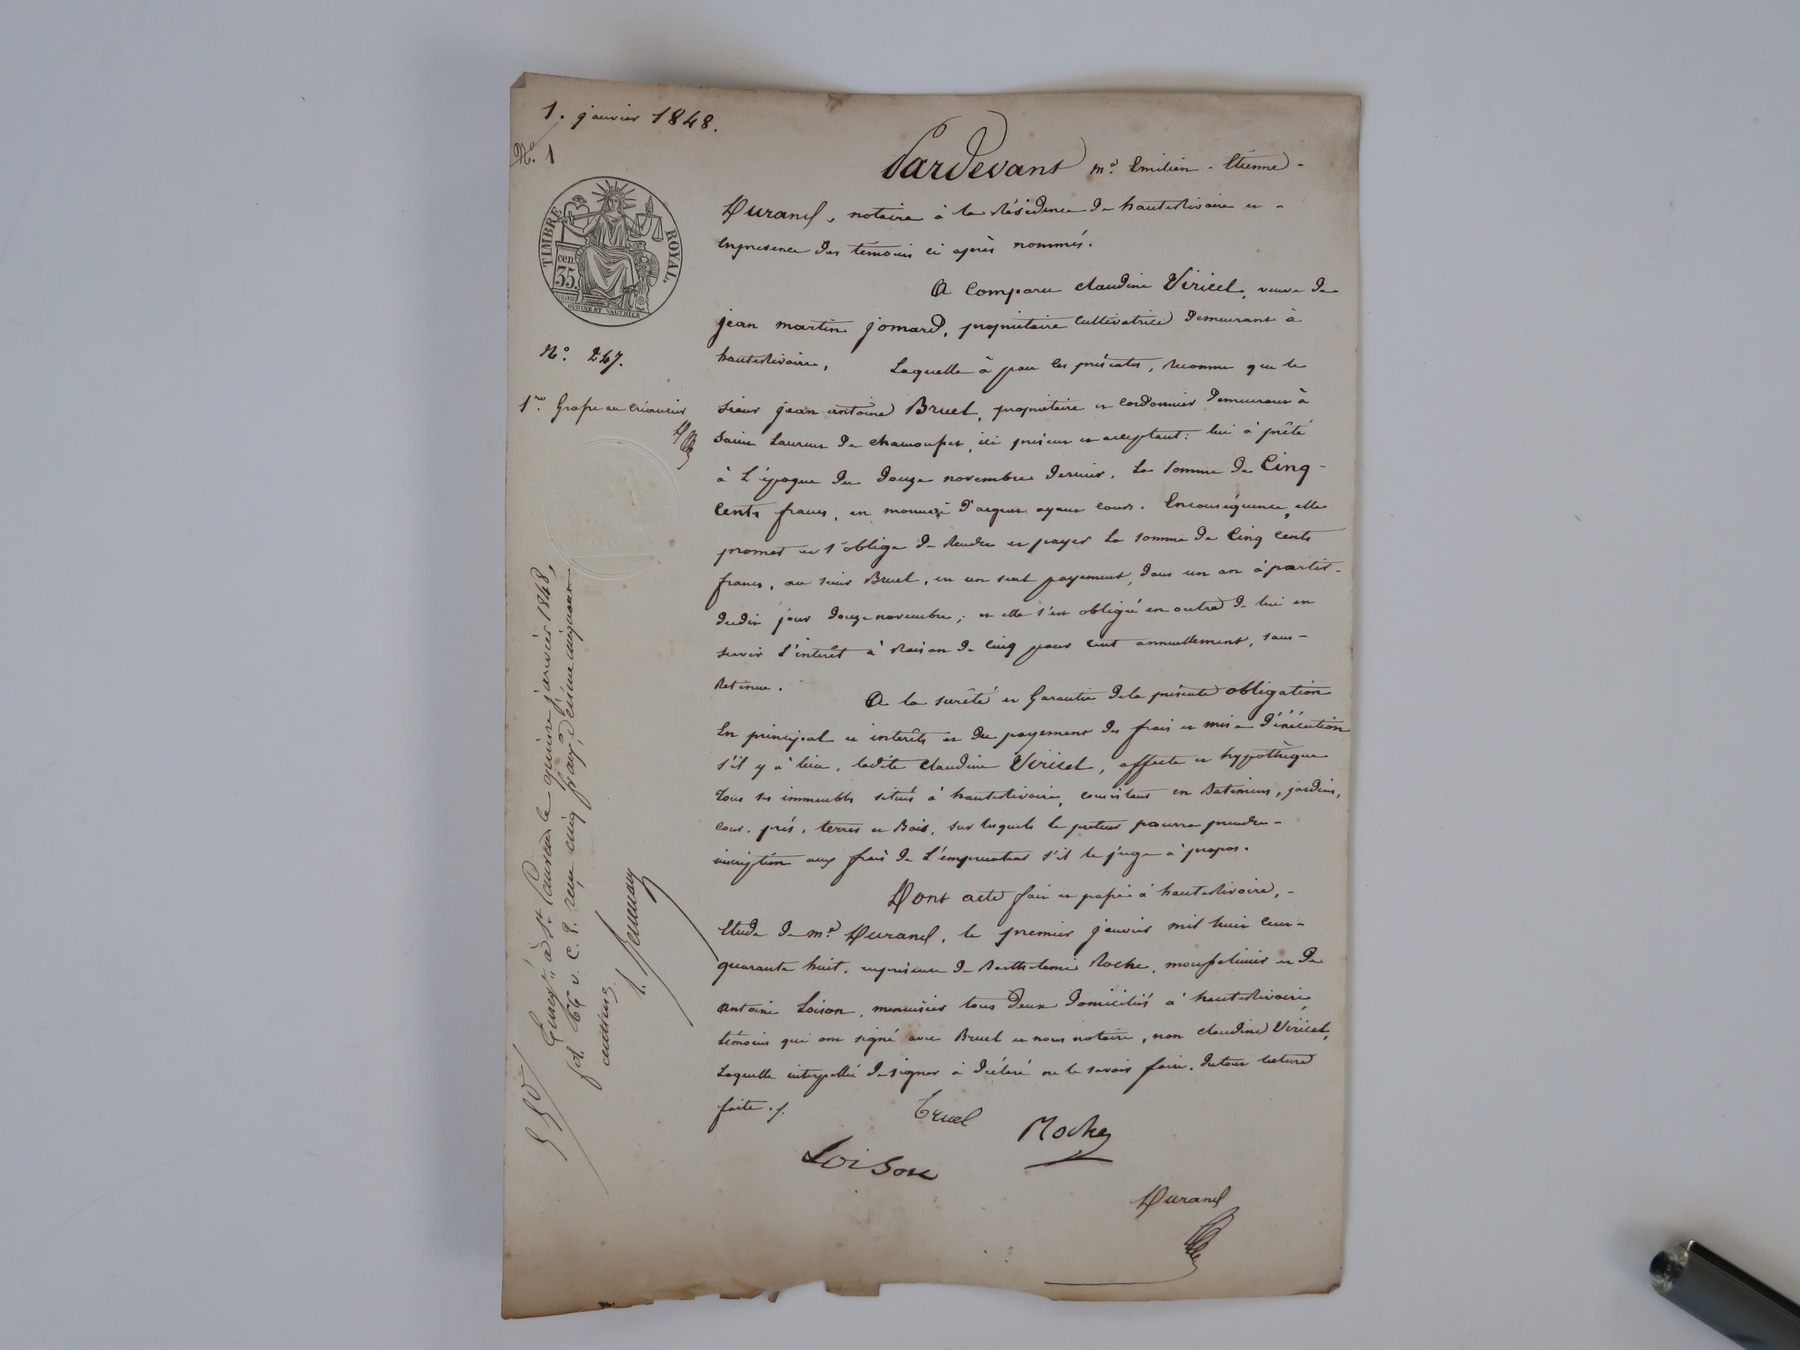 1. janvier 1848.
N.° 1
TIMBRE ROYAL.
cen. 35.
N.° 247.
1.re Grosse au créancier
Pardevant m.e Emilien-Etienne-
Durand, notaire à la résidence de hauterivoire et-
enpresence des témoins ci après nommés.
A comparu claudine Viricel, veuve de
jean martin jomard, propriétaire cultivatrice demeurant à
hauterivoire, Laquelle à par les présentes, reconnu que le
sieur jean antoine Bruel, propriétaire et cordonnier demeurant à
saint Laurent de chamousset, ici présent et acceptant: lui à prêté
à l'époque du douze novembre dernier, la somme de Cinq-
cents francs, en monnaie d'argent ayant cours. Enconséquence, elle
promet et s'oblige de rendre et payer la somme de Cinq cents
francs, au sieur Bruel, en un seul payement, dans un an à partir-
dudit jour douze novembre; et elle s'est obligée en outre de lui en
servir l'interêt à raison de cinq pour cent annuellement, sans-
retenue.
A la surêté et Garantie dela présente obligation
En principal et interêts et du payement des frais et mise d'éxécution
s'il y à lieu, ladite claudine Viricel, affecte et hypothèque
Tous ses immeubles situés à hauterivoire, consistant en Batiments, jardins,
cour, prés, terres et Bois, sur lesquels le preteur pourra prendre-
inscription aux frais de l'emprunteur s'il le juge à propos.
Dont acte fait et passé à hauterivoire,-
Etude de m.e Durand, le premier janvier mil huit cent-
quarante huit, enprésence de Barthelemie Roche, et de
antoine Loison, menuisier tous deux domiciliés à hauterivoire,
témoins qui ont signé avec Bruel et nous notaire, non claudine Viricel,
Laquelle interpellée designer à déclaré ne le savoir faire, dutout lecture
faite./.
Bruel
Roche
Loison
Durand
Enreg.é à S.t Laurent le quinze janvier 1848,
f.o 66 v. C. 8. reçu cinq francs, décime cinquante
centimes.